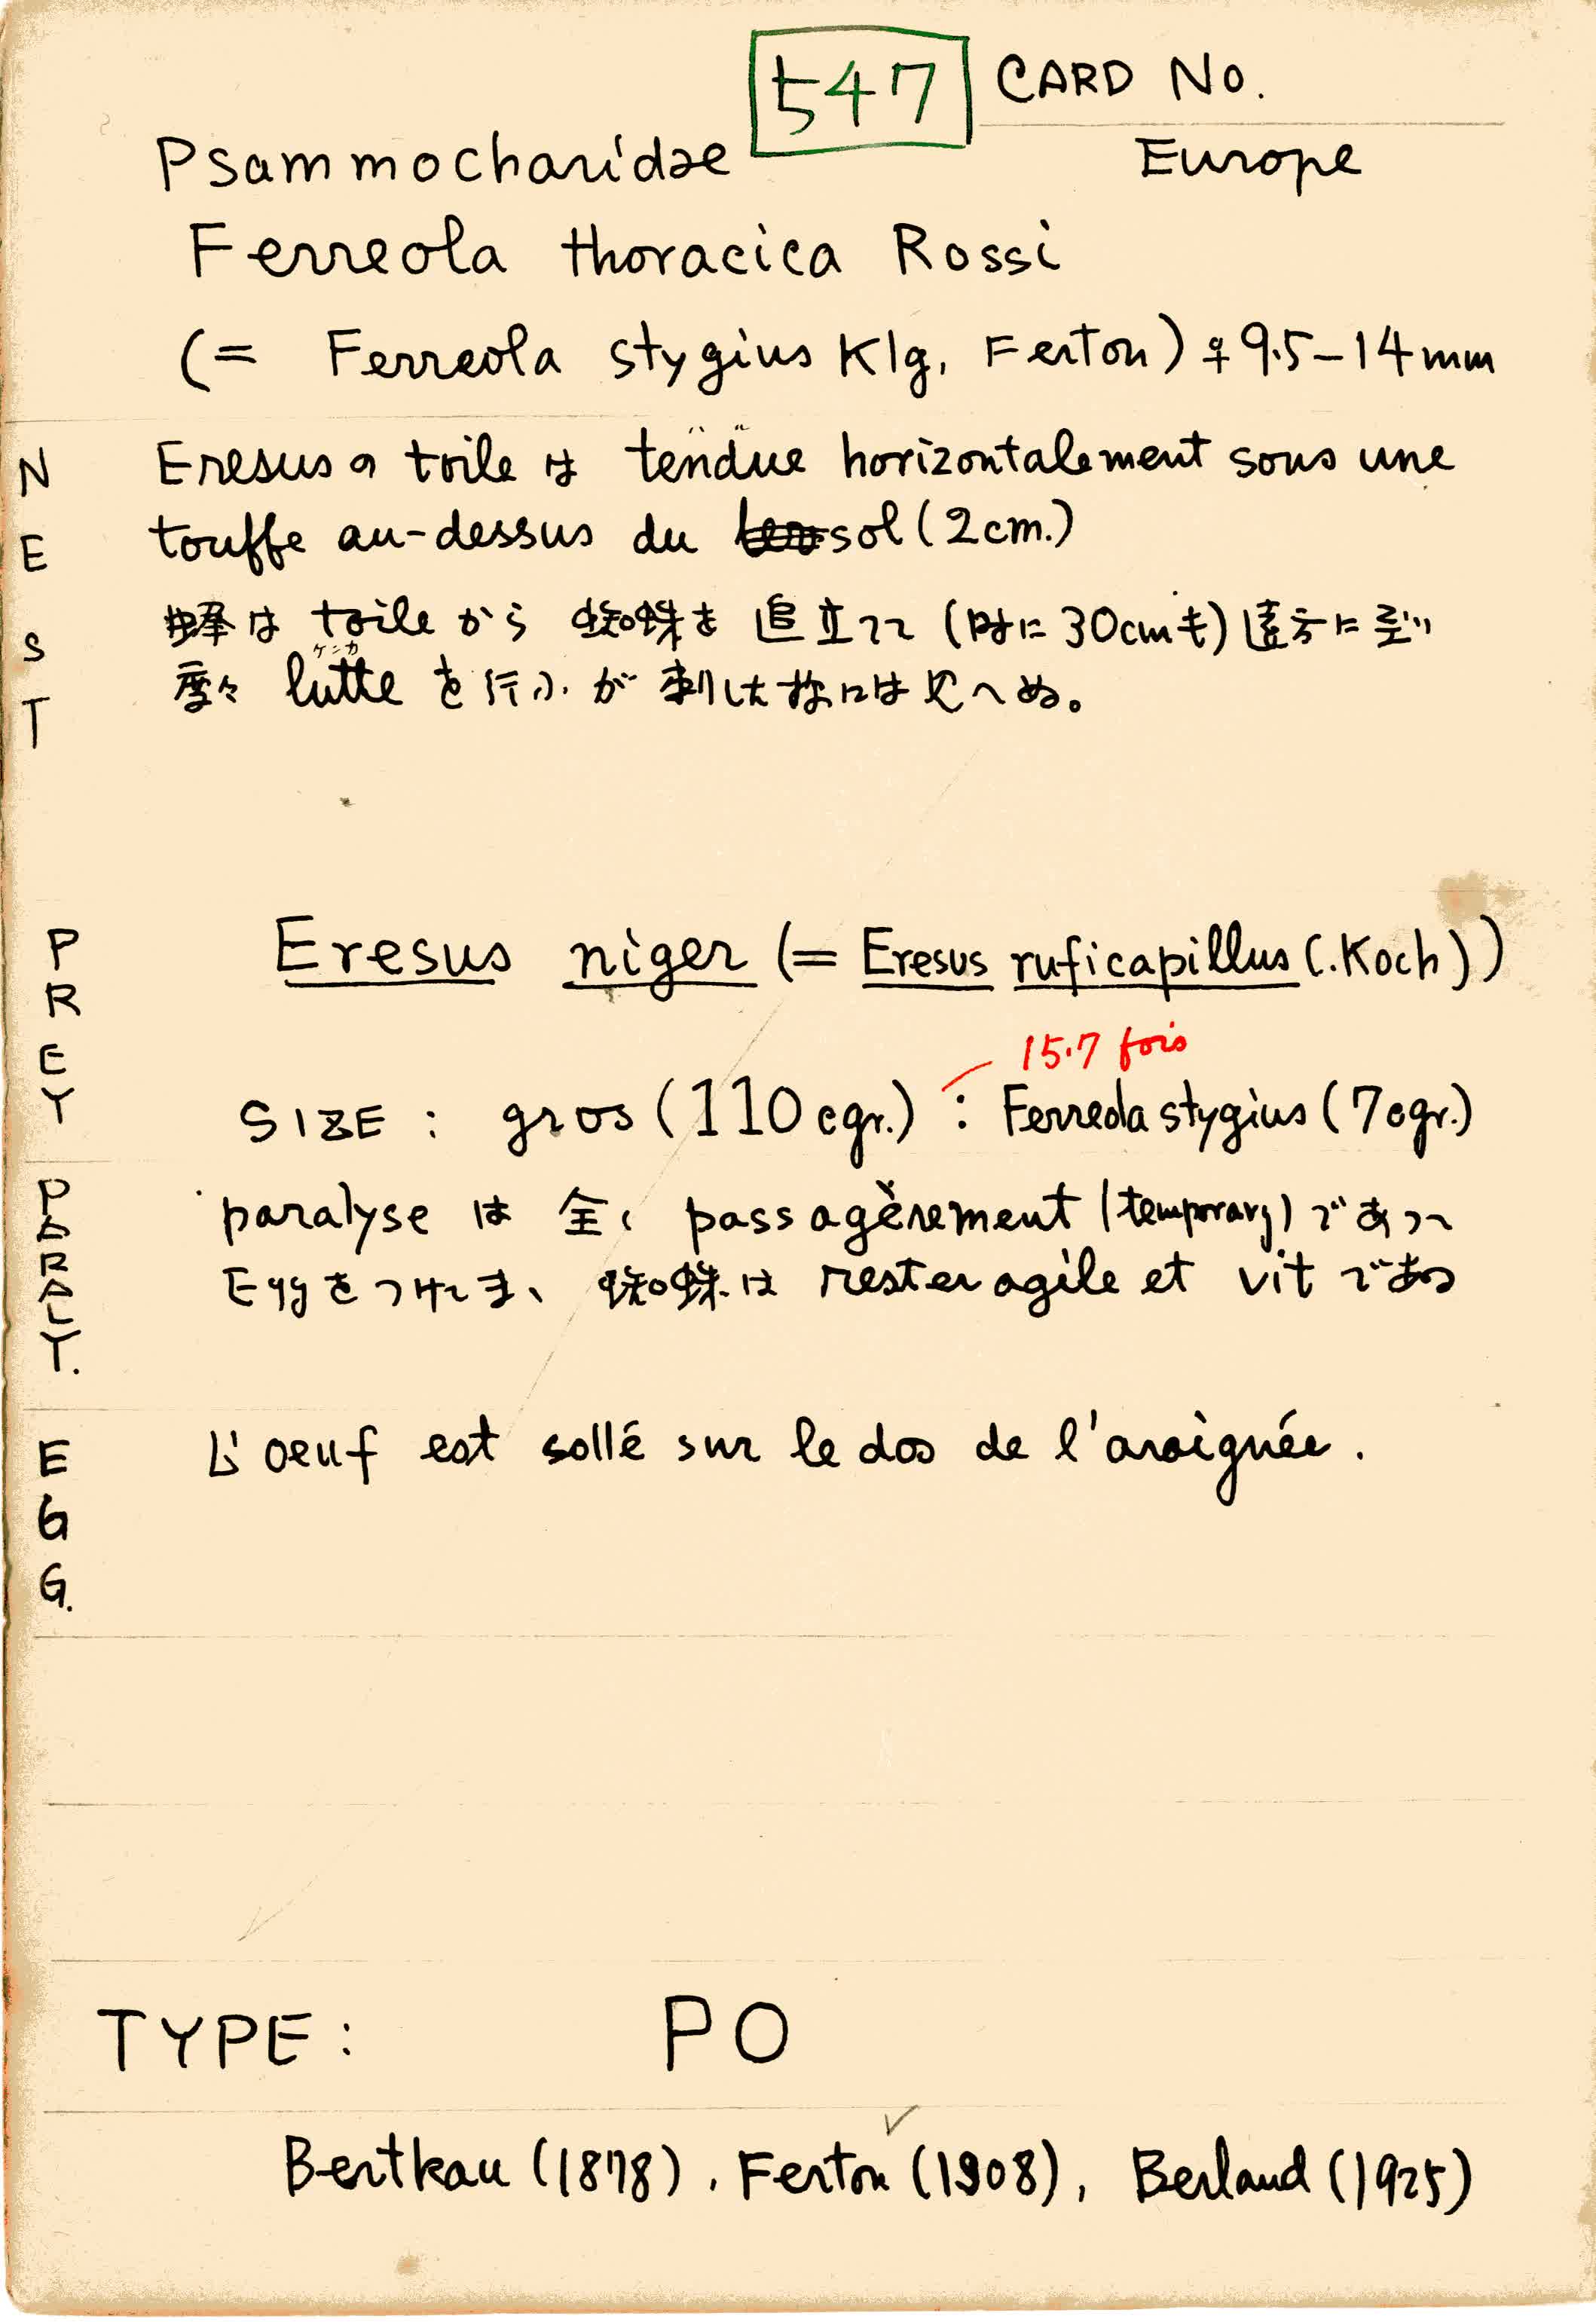 547 CARD No.
Psammocharidae Europe
Ferreola thoracica Rossi
(= Ferreola stygius Klg, Ferton) ♀ 9.5-14mm
NEST
Eresus の toile は tendue horizontalement sous une
touffe au-dessus du sol (2cm.)
蜂は toile から 蜘蛛を 追立てて (時に 30cmも) 遠方に至り
ケンカ
度々 lutte を行ふが 刺した様には見へぬ。
PREY
Eresus niger (= Eresus ruficapillus C.Koch))
15.7 fois
SIZE : gros (110 cgr.) : Ferreola stygius (7cgr.)
PARALY.
paralyse は 全く passagèrement (temporary) であって
Eggをつけたまゝ 蜘蛛は rester agile et vit である
EGG.
L'oeuf est sollé sur le dos de l'araignée.
TYPE: PO
Bertkau (1878), Ferton (1908), Berland (1925)